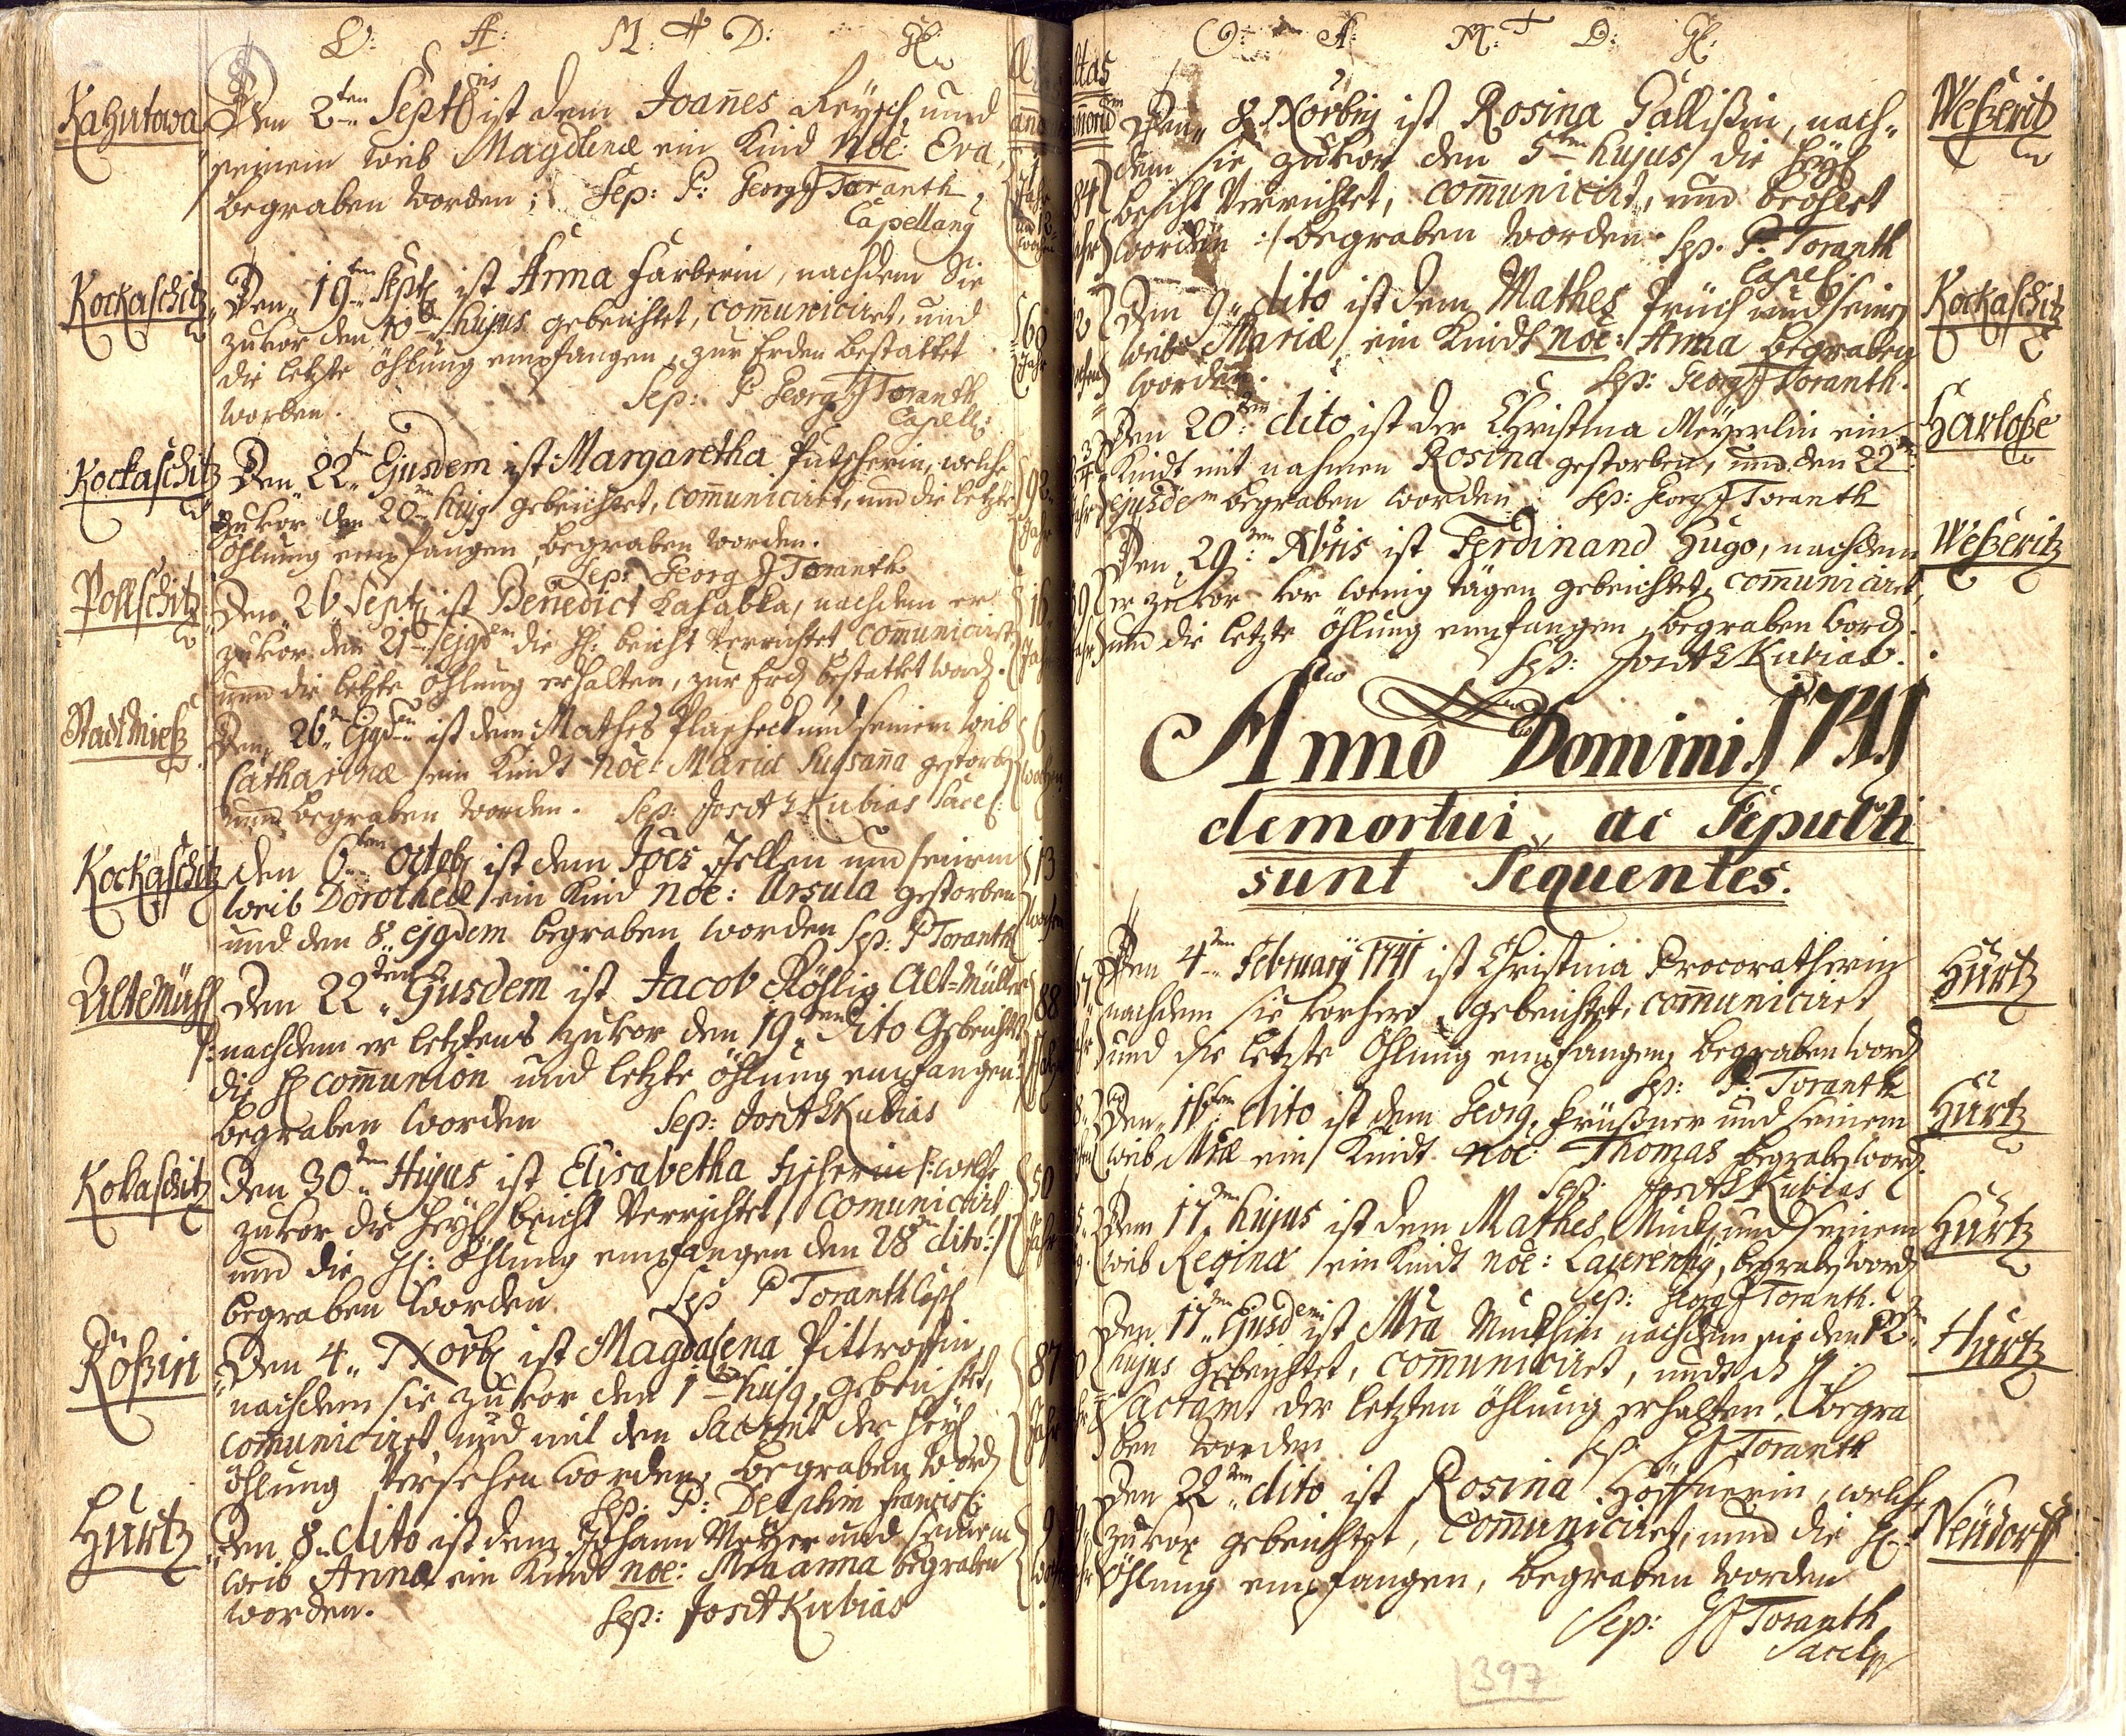 O: A: M: D: Gl:
Kahutowa
Den 2ten Septbris ist dem Joanes Reysch, und
seinem weib Magdlenæ ein Kind noe: Eva,
begraben worden; Sep: P: Georg J Toranth
Capellang
Kockaschitz
Den 19ten Septb ist Anna Farberin, nachdem Sie
zuvor den 10ten hujus gebeichtet, comuniciret, und
die letzte öhlung empfangen, zur Erden bestattet
worden. Sep: P Georg J Toranth
Capell:
60 Jahr
Kockaschitz
Den 22ten Ejusdem ist Margaretha Putscherin, welche
zuvor den 20ten hujg gebeichtet, comuniciret, und die letzte
öhlung empfangen, begraben worden.
Sep: Georg J Toranth
92 Jahr
Pollschitz
Den 26 Septb ist Benedict Lahabka, nachdem er
zuvor den 21ten ejgd die H: beicht verrichtet comuniciret,
und die letzte öhlung erhalten, zur Erd bestattet word.
16 Jah
Stadt Mieß
Den 26ten Ejgdem ist dem Mathes Plasheck und seinem weib
Catharinæ ein Kindt noe: Maria Sussana gestorb
und begraben worden. Sep: JosAEKubias Sacel:
6 wochen
Kockaschitz
den 6ten Octob ist dem Joes Zellen und seinem
weib Dorotheæ ein Kind noe: Ursula gestorben
und den 8. ejgdem begraben worden Sep: P Toranth
13 wochen
Altemühl
Den 22ten Ejusdem ist Jacob Röhlig Alt=Müller
/: nachdem er letztens zuvor den 19ten dito Gebeichtet
die H comunion und letzte öhlung empfangen :/
begraben worden Sep: JosAEKubias
88
Kokaschitz
Den 30ten Hujus ist Elisabetha Fischerin /: welche
zuvor die heyl beicht verrichtet, comunicirt,
und die H: öhlung empfangen den 28ten dito :/
begraben worden Sep P Toranth Capl
50 Jahr
Rößin
Den 4ten Novb ist Magdalena Pittroffin,
nachdem sie zuvor den 1ten hujg, gebeichtet,
comuniciret und mit dem Sacrmt der heyl
öhlung versehen worden, begraben word
Sep: P: Delphin Francisc:
87 Jahr
Hurtz
Den 8ten dito ist dem Johann Metzer und seinem
weib Anna ein Kind noe: Mra anna begraben
worden. Sep: JosAKubias
9
O: A: M: D: Gl:
Den 8 Novbrig ist Rosina Gallißin, nach=
dem sie zuvor den 5ten hujus die heyl
beicht verrichtet, comunicirt, und beöhlet
worden :/ begraben worden Sep. P. Toranth
Capel:
Weßeritz
84 Jahr
Den 9ten dito ist dem Mathes Früch und seinem
weib Mariæ ein Kindt noe: Anna begraben
worden. Sep: Georg J Toranth.
Kockaschitz
Den 20ten dito ist der Christina Meyerlin ein
Kindt mit nahmen Rosina gestorben, und den 22ten
ejusdem begraben worden. Sep: Georg J Toranth
Harloße
Den 29ten Xbris ist Ferdinand Hugo, nachdem
er zuvor vor wenig tägen gebeichtet, comuniciret,
und die letzte öhlung empfangen, begraben word.
Sep: JosAEKubias.
Weßeritz
Anno Domini 1741
demortui, ac Sepulti
sunt Sequentes.
Den 4ten February 1741 ist Christina Procoratherin
nachdem sie vorhero gebeichtet, comuniciret
und die letzte öhlung empfangen, begraben word
Sep: P. Toranth
Hurtz
Den 16ten dito ist dem Georg, Prüßner und seinem
weib Mræ ein Kindt noe: Thomas begrab word.
Sep: JosAEKubias
Hurtz
Den 17ten hujus ist dem Mathes Muck und seinem
weib Reginæ ein Kindt noe: Laurentig, begrab word
Sep: Georg J Toranth.
Hurtz
Den 17ten Ejusdem ist Mra Muckhin nachdem sie den 12ten
hujus gebeichtet, comuniciret, und das H:
Sacram. der letzten öhlung erhalten, begra
ben worden Sep GJ Toranth
Hurtz
Den 22ten dito ist Rosina Höffnerin, welche
zuvor gebeichtet, comuniciret, und die H:
öhlung empfangen, begraben worden
Sep: GJ Toranth
Sacelg
Neudorff
397